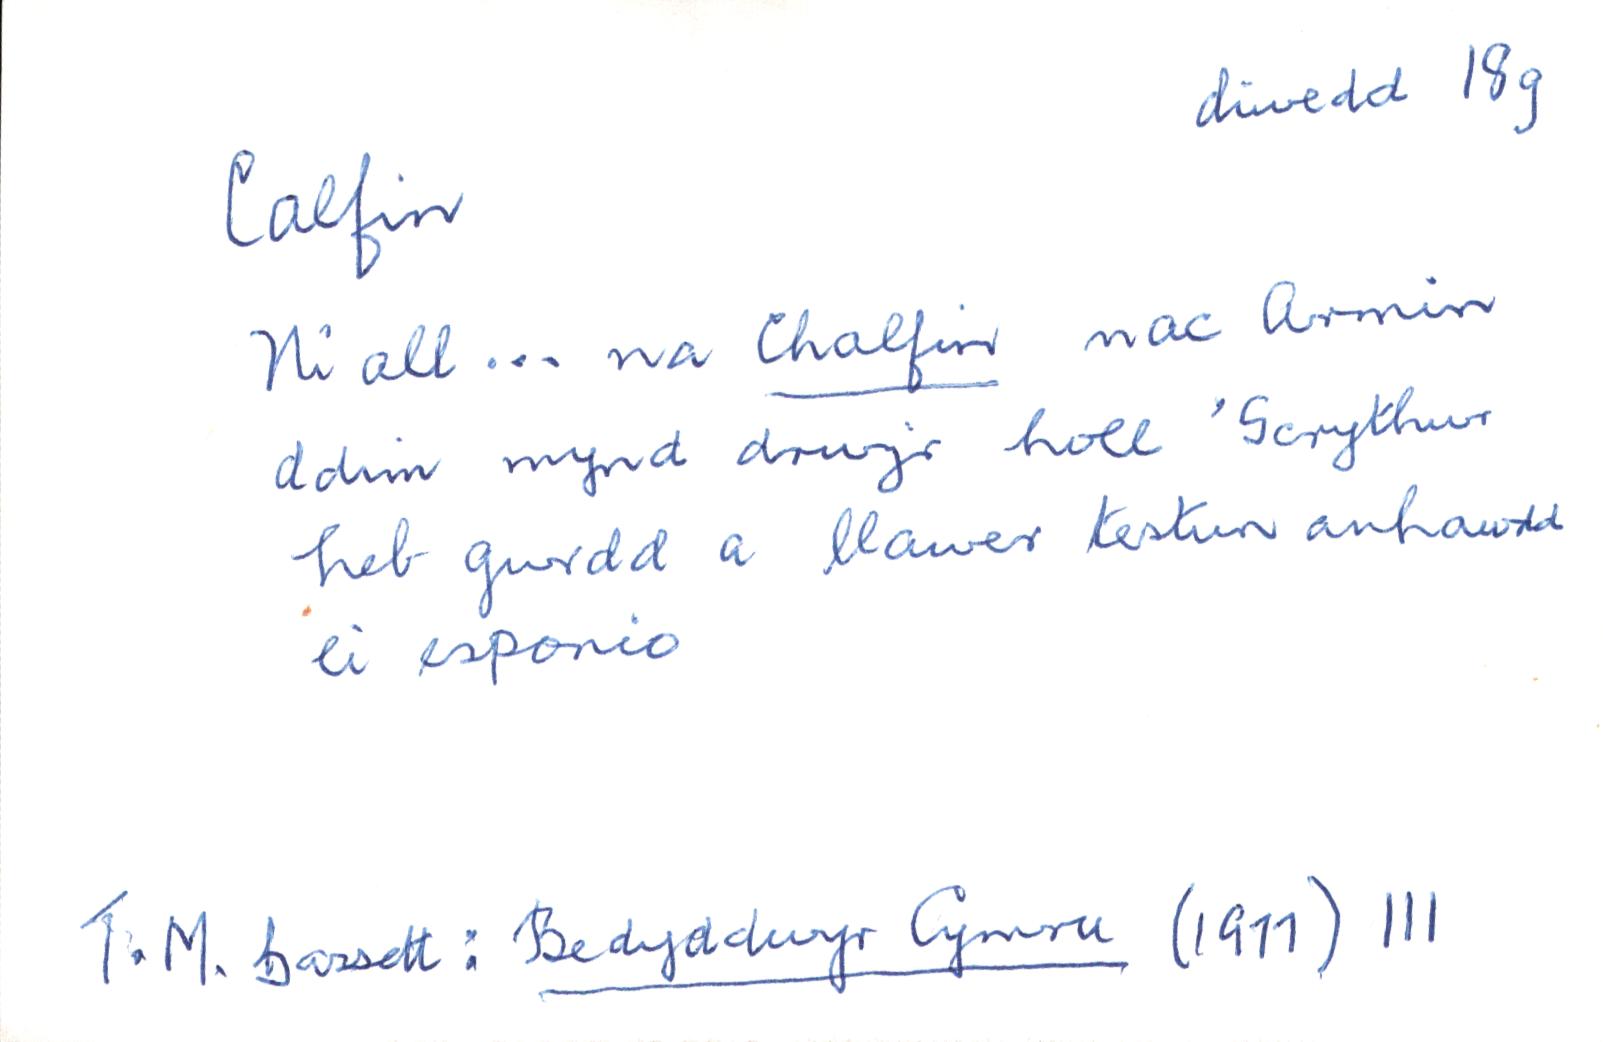 diwedd 18g
Calfin
Ni all ... na Chalfin nac Armin
ddim mynd drwy'r holl 'Scrythur
heb gwrdd a llawer testun anhawdd
ei esponio
T. M. Bassett: Bedyddwyr Cymru (1977) 111